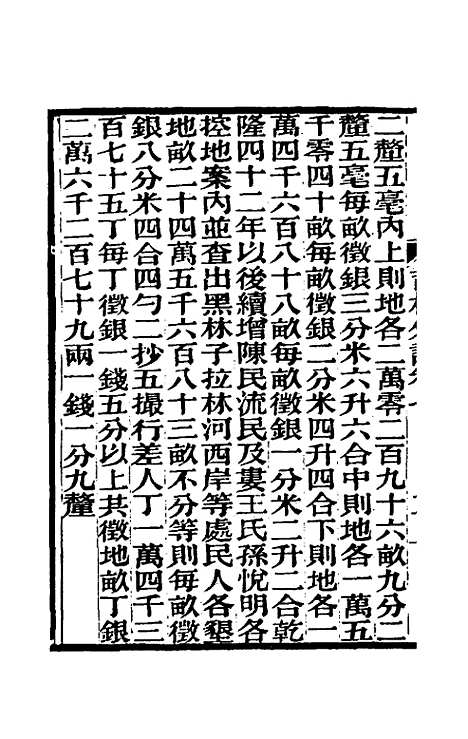 二釐五毫內上則地各二萬零二百九十六畝九分二
釐五毫每畝徵銀三分米六升六合中則地各一萬五
千零四十畝每畝徵銀二分米四升四合下則地各一
萬四千六百八十八畝每畝徵銀一分米二升二合乾
隆四十二年以後續增陳民流民及婁王氏孫悅明各
控地案內並查出黑林子拉林河西岸等處民人各墾
地畝二十四萬五千六百八十三畝不分等則每畝徵
銀八分米四合四勺二抄五撮行差人丁一萬四千三
百七十五丁每丁徵銀一錢五分以上共徵地畝丁銀
二萬六千二百七十九兩一錢一分九釐